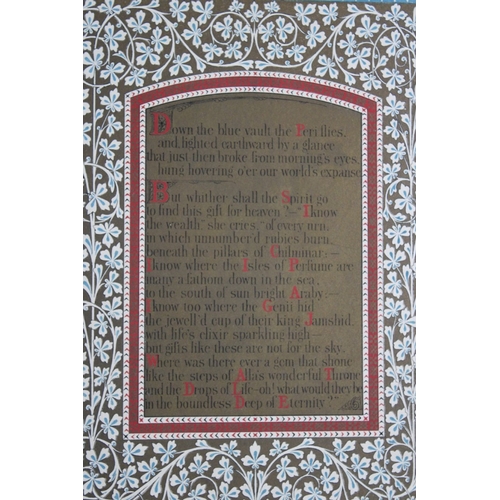 Down the blue vault the Peri flies,
and, lighted earthward by a glance
that just then broke from morning's eyes,
hung hovering o'er our world's expanse.
But whither shall the Spirit go
to find this gift for heaven?—"I know
the wealth" she cries "of every urn,
in which unnumber'd rubies burn,
beneath the pillars of Chilminar;—
I know where the Isles of Perfume are
many a fathom down in the sea,
to the south of sun bright Araby;—
I know too where the Genii hid
the jewell'd cup of their king Jamshid,
with life's elixir sparkling high—
but gifts like these are not for the sky.
Where was there ever a gem that shone
like the steps of Alla's wonderful Throne
and the Drops of Life—oh! what would they be
in the boundless Deep of Eternity?"